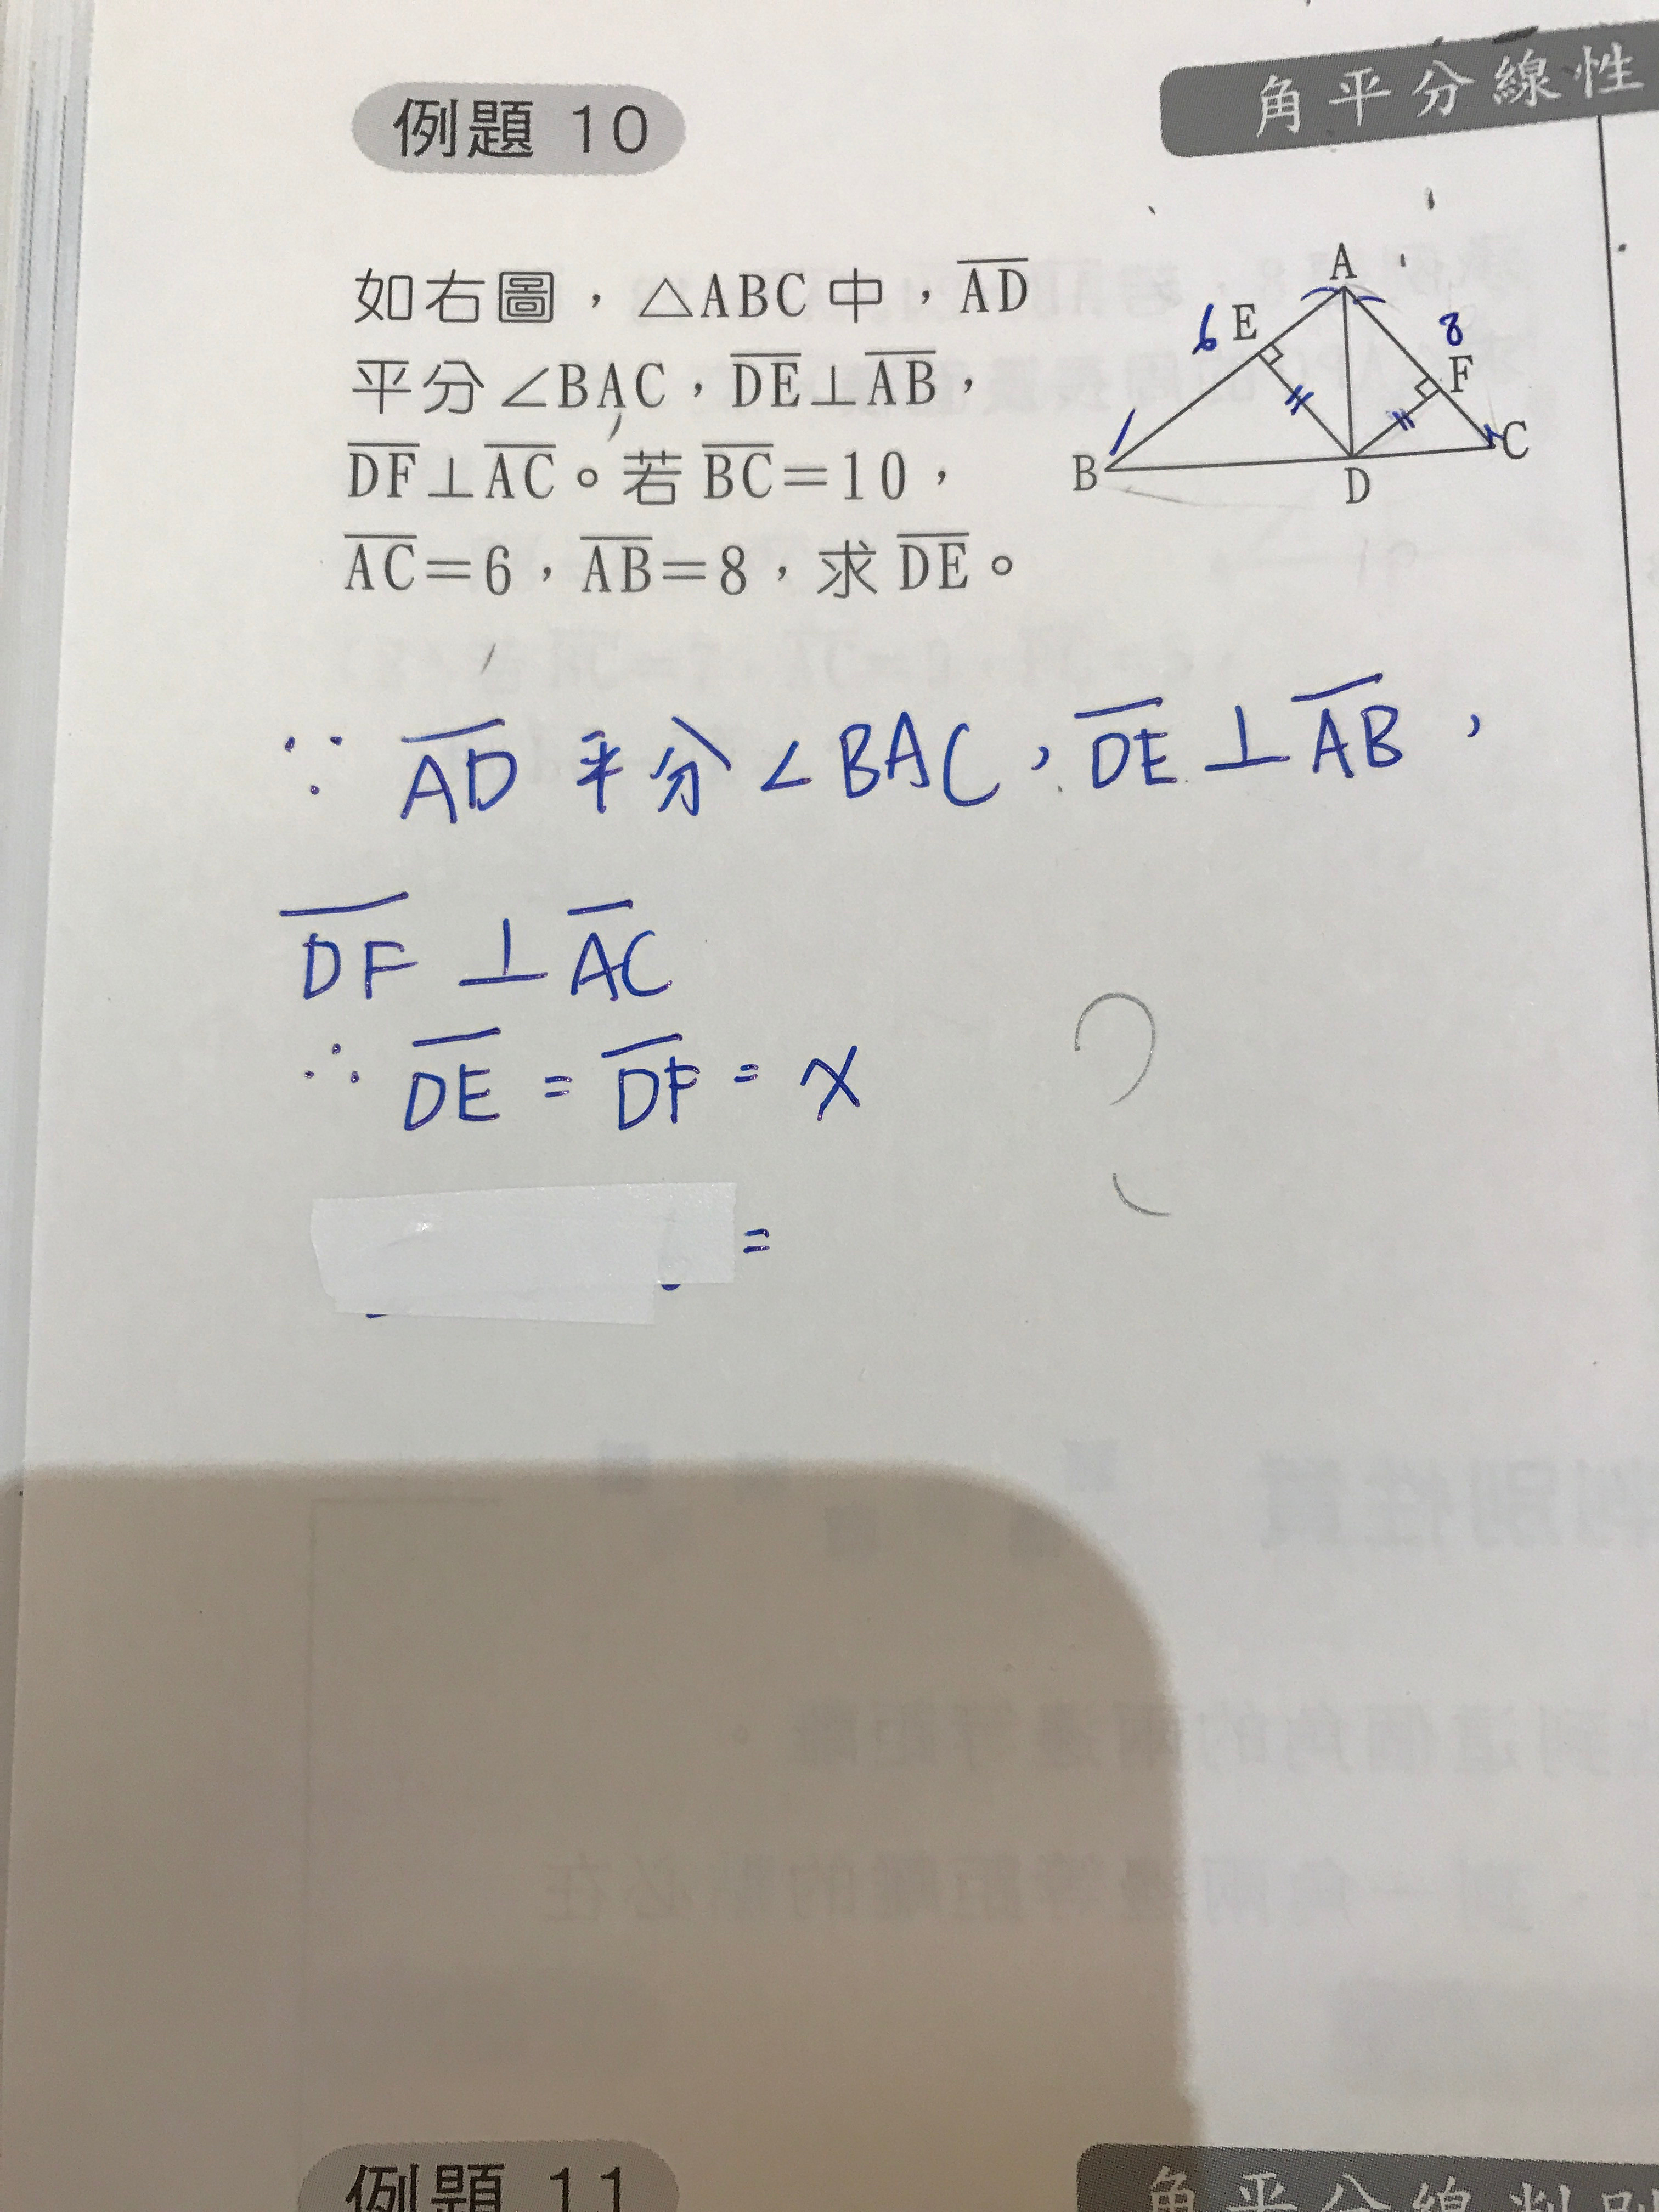 例題 10
角平分線性
如右圖，△ABC 中，AD
平分∠BAC，DE⊥AB，
DF⊥AC。若 BC=10，
AC=6，AB=8，求 DE。
A
6 E
8
F
B
D
C
∵ AD 平分∠BAC，DE⊥AB，
DF⊥AC
∴ DE = DF = x
?
=
例題 11
角平分線判別